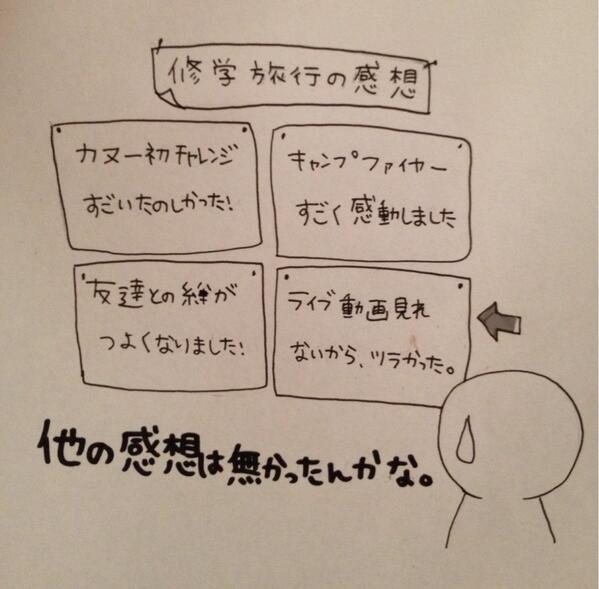 修学旅行の感想
カヌー初チャレンジ
すごいたのしかった!
キャンプファイヤー
すごく感動しました
友達との絆が
つよくなりました!
ライブ動画見れ
ないから、ツラかった。
他の感想は無かったんかな。